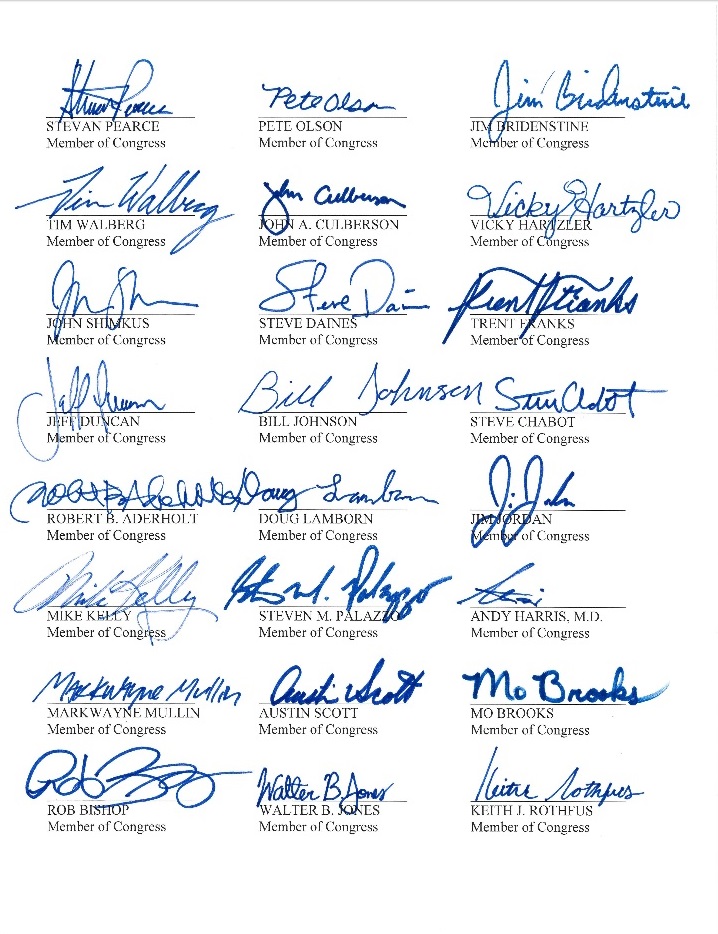 Stevan Pearce Pete Olson Jim Bridenstine
STEVAN PEARCE PETE OLSON JIM BRIDENSTINE
Member of Congress Member of Congress Member of Congress
Tim Walberg John Culberson Vicky Hartzler
TIM WALBERG JOHN A. CULBERSON VICKY HARTZLER
Member of Congress Member of Congress Member of Congress
Steve Daines Trent Franks
JOHN SHIMKUS STEVE DAINES TRENT FRANKS
Member of Congress Member of Congress Member of Congress
Jeff Duncan Bill Johnson Steve Chabot
JEFF DUNCAN BILL JOHNSON STEVE CHABOT
Member of Congress Member of Congress Member of Congress
Robert B. Aderholt Doug Lamborn
ROBERT B. ADERHOLT DOUG LAMBORN JIM JORDAN
Member of Congress Member of Congress Member of Congress
Mike Kelly Steven M. Palazzo
MIKE KELLY STEVEN M. PALAZZO ANDY HARRIS, M.D.
Member of Congress Member of Congress Member of Congress
Markwayne Mullin Austin Scott Mo Brooks
MARKWAYNE MULLIN AUSTIN SCOTT MO BROOKS
Member of Congress Member of Congress Member of Congress
Rob Walter B. Jones Keith Rothfus
ROB BISHOP WALTER B. JONES KEITH J. ROTHFUS
Member of Congress Member of Congress Member of Congress